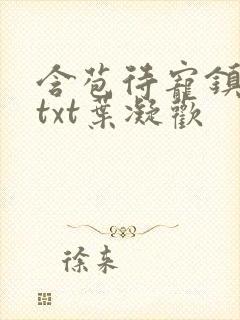 含苞待寵鎮
txt葉凝歡
徐来